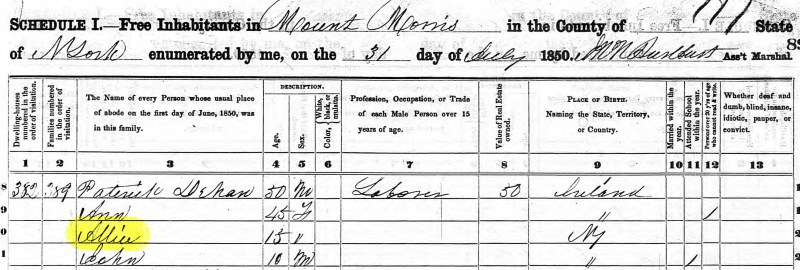 SCHEDULE I.—Free Inhabitants in Mount Morris in the County of State
of N York enumerated by me, on the 31 day of July 1850. Ass't Marshal.
Dwelling-houses numbered in the order of visitation.
Families numbered in the order of visitation.
The Name of every Person whose usual place of abode on the first day of June, 1850, was in this family.
DESCRIPTION.
Age.
Sex.
Color, White, black, or mulatto.
Profession, Occupation, or Trade of each Male Person over 15 years of age.
Value of Real Estate owned.
PLACE OF BIRTH.
Naming the State, Territory, or Country.
Married within the year.
Attended School within the year.
Persons over 20 y'rs of age who cannot read & write.
Whether deaf and dumb, blind, insane, idiotic, pauper, or convict.
1 2 3 4 5 6 7 8 9 10 11 12 13
382 389 Patrick Dehan 50 M Laborer 50 Ireland
Ann 45 F " 1
Allice 15 " NY
John 10 M " 1